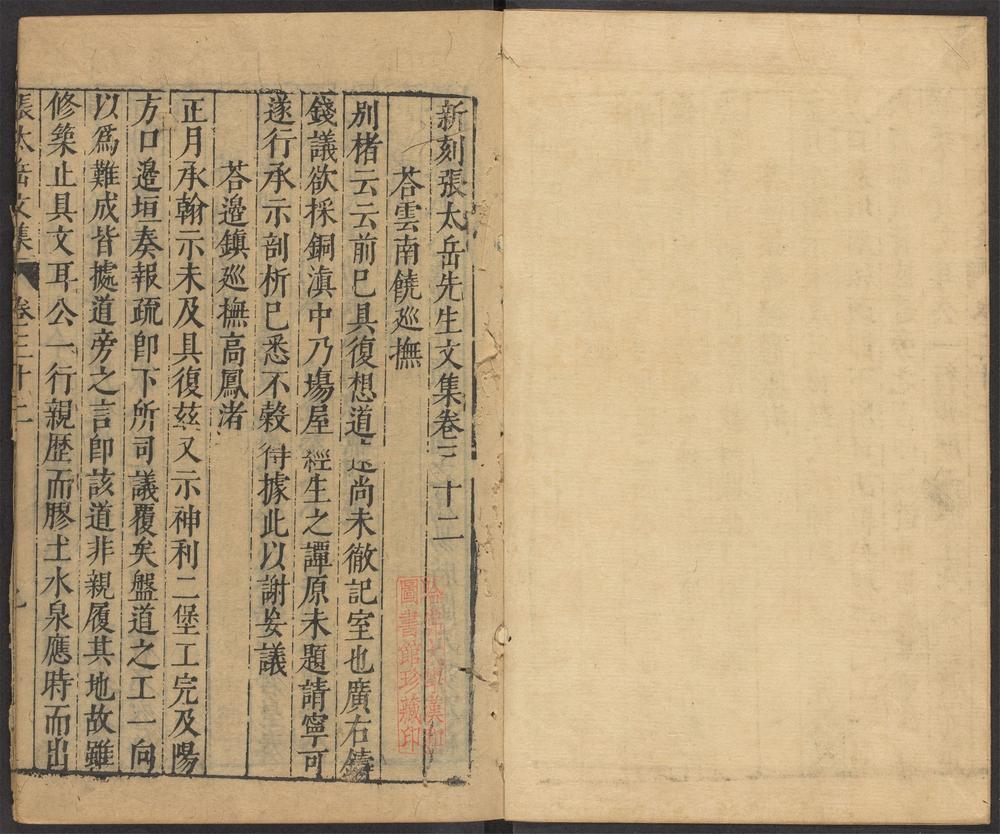 新刻張太岳先生文集卷三十二
荅雲南饒廵撫
別楮云云前已具復想道遠尚未徹記室也廣右鑄
錢議欲採銅滇中乃場屋經生之譚原未題請寧可
遂行承示剖析已悉不穀得據此以謝妄議
荅邊鎮廵撫高鳳渚
正月承翰示未及具復玆又示神利二堡工完及陽
方口邊垣奏報疏卽下所司議覆矣盤道之工一向
以爲難成皆據道旁之言卽該道非親履其地故雖
修築止具文耳公一行親歷而膠土水泉應時而出
張太岳文集 卷三十二
圖書館珍藏印